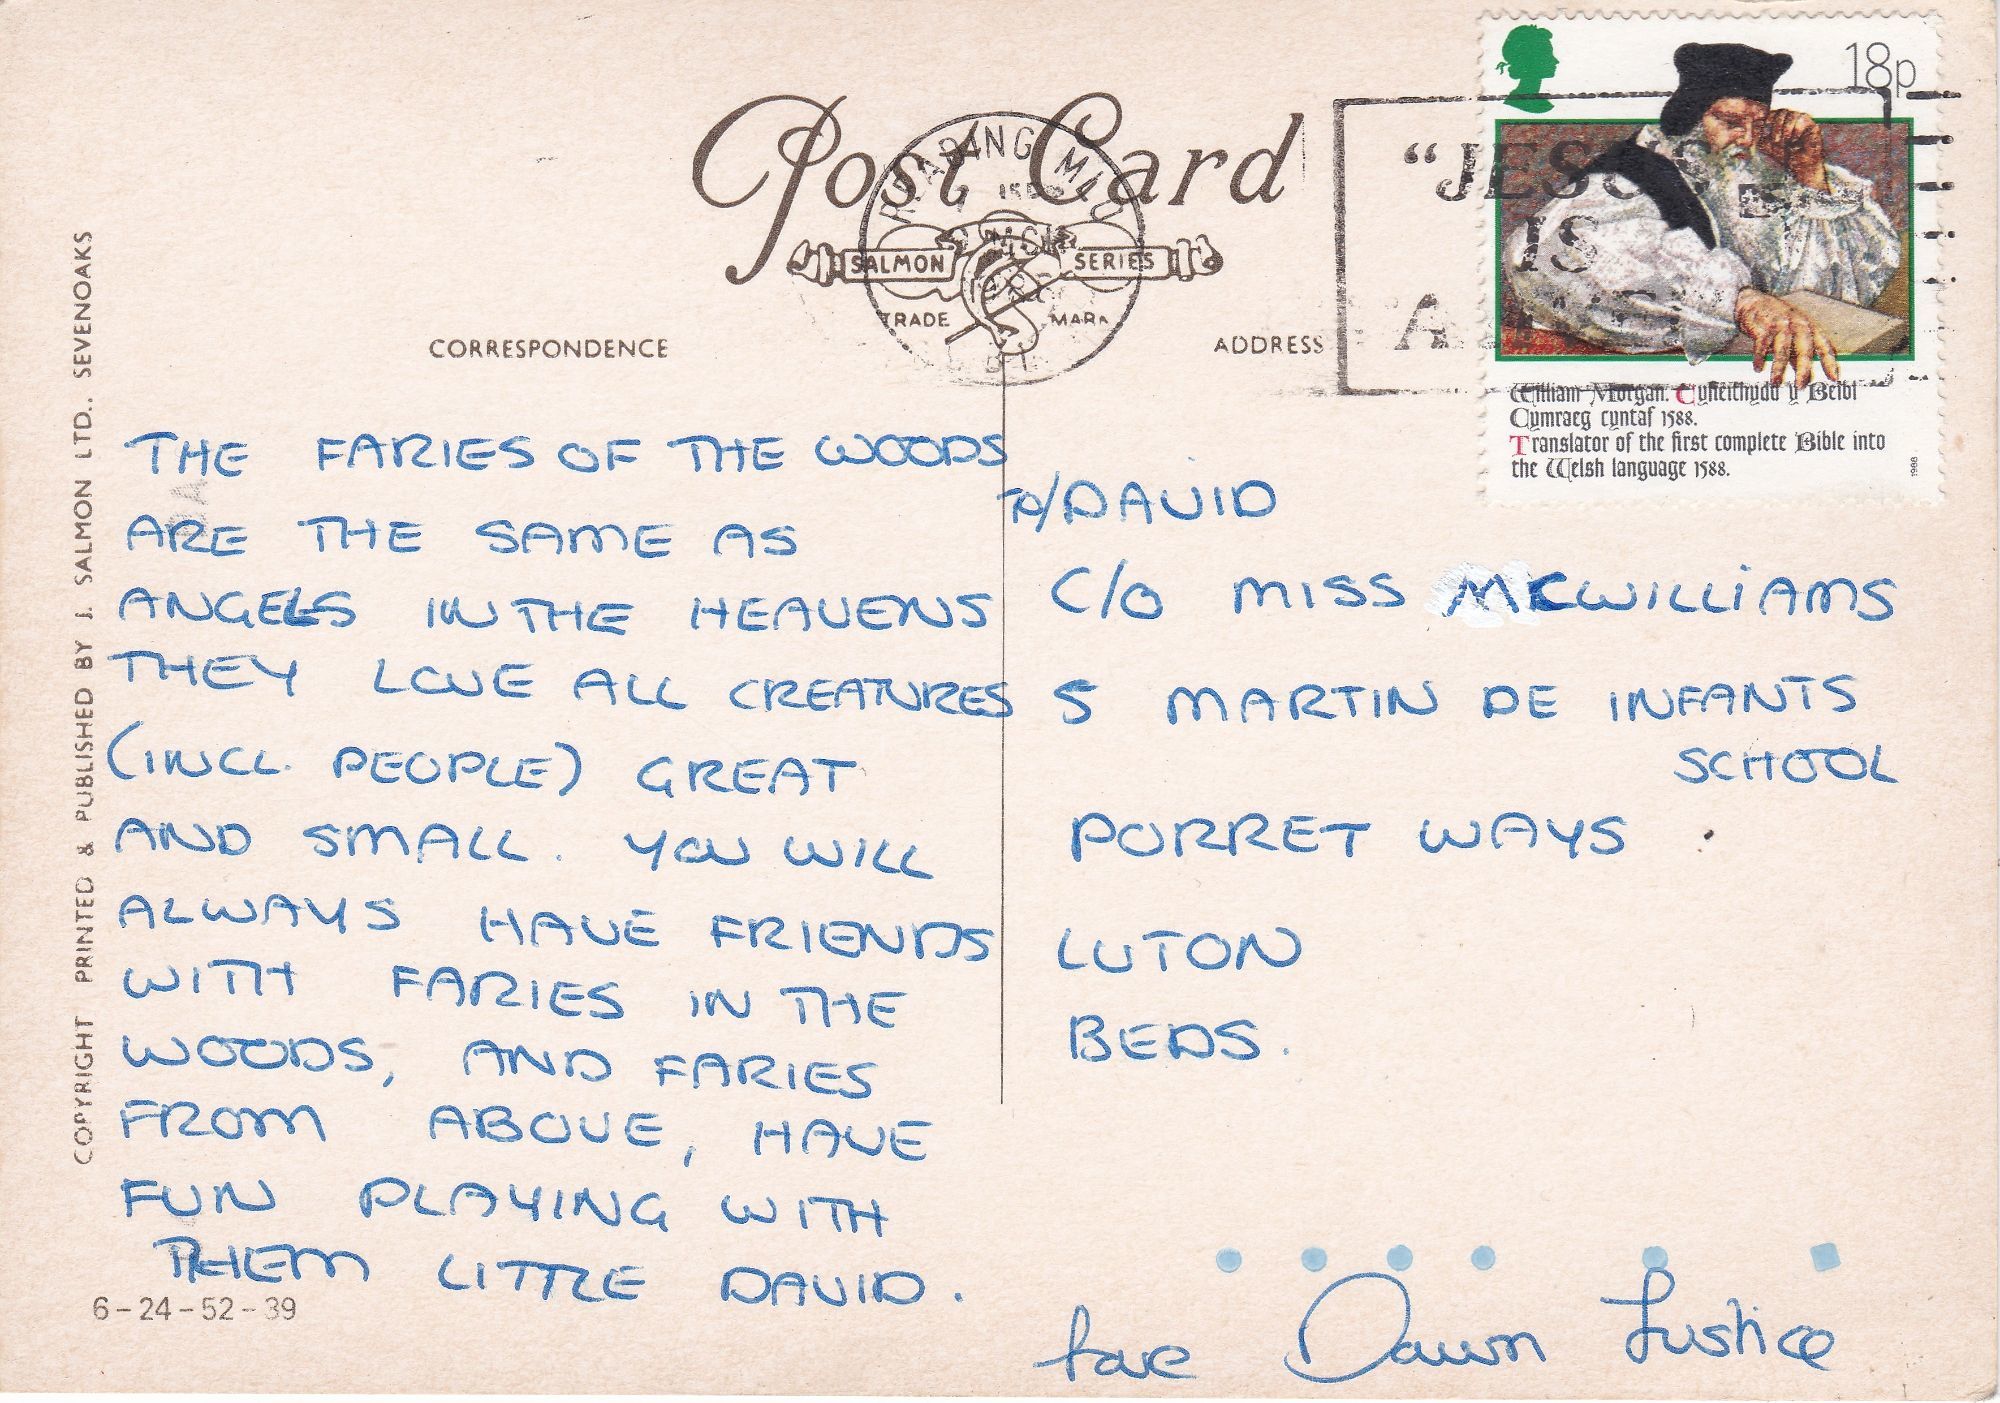 18p
Post Card
READING
SALMON SERIES
TRADE MARK
"JESUS
IS
CORRESPONDENCE
ADDRESS
William Morgan. Cyfieithydd y Beibl
Cymraeg cyntaf 1588.
Translator of the first complete Bible into
the Welsh language 1588.
1988
COPYRIGHT PRINTED & PUBLISHED BY J. SALMON LTD., SEVENOAKS
THE FARIES OF THE WOODS
ARE THE SAME AS
ANGELS IN THE HEAVENS
THEY LOVE ALL CREATURES
(INCL. PEOPLE) GREAT
AND SMALL. YOU WILL
ALWAYS HAVE FRIENDS
WITH FARIES IN THE
WOODS, AND FARIES
FROM ABOVE, HAVE
FUN PLAYING WITH
THEM LITTLE DAVID.
6-24-52-39
TO/DAVID
C/O MISS MCWILLIAMS
S MARTIN DE INFANTS
SCHOOL
PORRET WAYS
LUTON
BEDS.
Dawn Justice